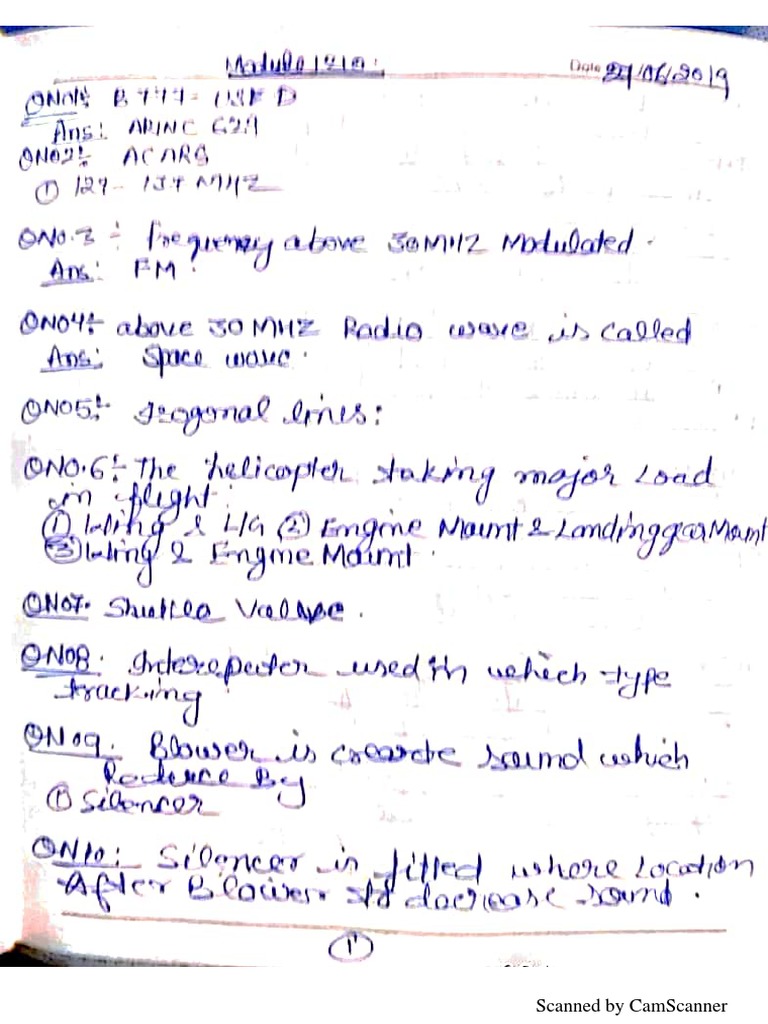 Module 12
Date 27/06/2019
QN01:- B 777- USED
Ans: ARINC 629
QN02:- ACARS
① 129 - 137 MHZ
QNO.3 :- frequency above 30MHZ Modulated.
Ans: FM.
QN04:- above 30 MHZ Radio wave is called
Ans: Space wave.
QN05:- Isogonal lines:
QNO.6:- The helicopter staking major Load
in flight:
① Wing & L/G ② Engine Mount & Landing gear Mount
③ Wing & Engine Mount.
QN07. Shuttle Valve.
QN08. used in which type
tracking!
QN09. Blower is crearte sound which
Reduce By
① Silencer
QN10: Silencer is fitted where Location
After Blower. decrease sound.
1
Scanned by CamScanner